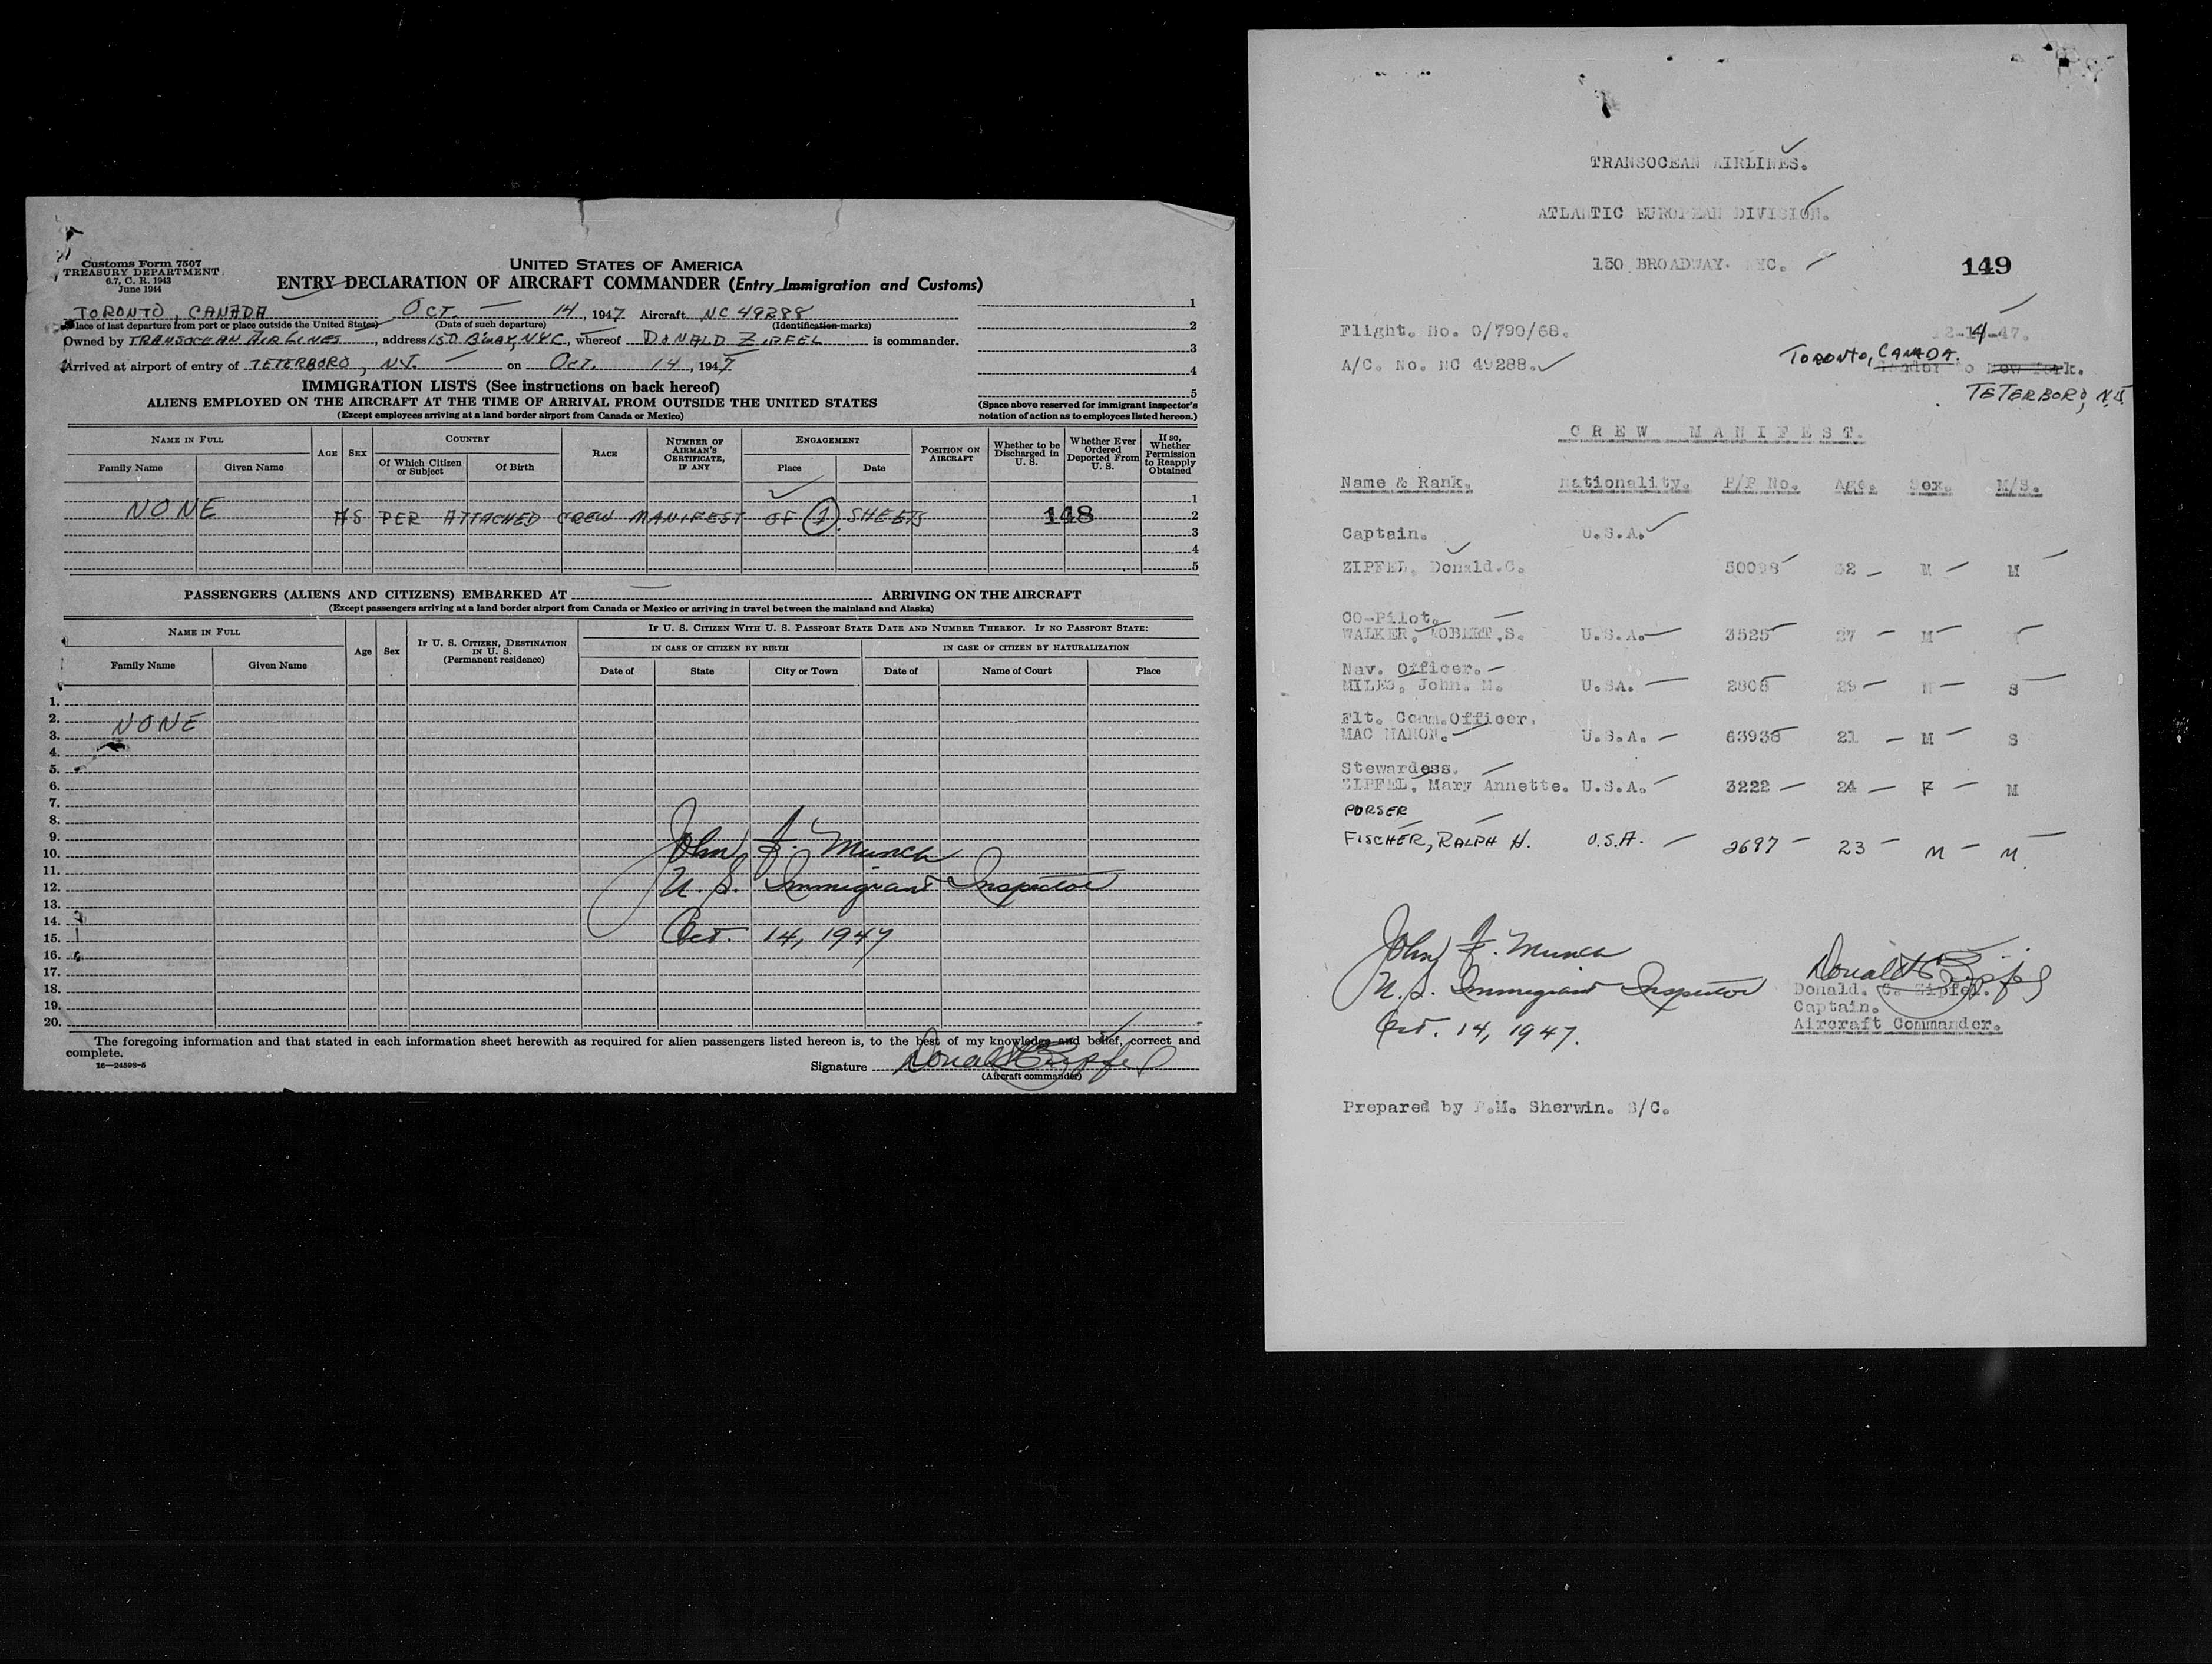 Customs Form 7507
TREASURY DEPARTMENT
6.7, C. R. 1943
June 1944
UNITED STATES OF AMERICA
ENTRY DECLARATION OF AIRCRAFT COMMANDER (Entry Immigration and Customs)
TORONTO, CANADA, OCT. 14, 1947 Aircraft NC 49288
(Place of last departure from port or place outside the United States) (Date of such departure) (Identification marks)
Owned by TRANSOCEAN AIRLINES, address 150 B'WAY, NYC, whereof DONALD ZIPFEL is commander.
Arrived at airport of entry of TETERBORO, N.J. on OCT. 14, 1947
1
2
3
4
5
(Space above reserved for immigrant inspector's
notation of action as to employees listed hereon.)
IMMIGRATION LISTS (See instructions on back hereof)
ALIENS EMPLOYED ON THE AIRCRAFT AT THE TIME OF ARRIVAL FROM OUTSIDE THE UNITED STATES
(Except employees arriving at a land border airport from Canada or Mexico)
NAME IN FULL
Family Name Given Name
AGE SEX
COUNTRY
Of Which Citizen or Subject Of Birth
RACE
NUMBER OF AIRMAN'S CERTIFICATE, IF ANY
ENGAGEMENT
Place Date
POSITION ON AIRCRAFT
Whether to be Discharged in U. S.
Whether Ever Ordered Deported From U. S.
If so, Whether Permission to Reapply Obtained
1
NONE AS PER ATTACHED CREW MANIFEST OF 1 SHEETS 148 2
3
4
5
PASSENGERS (ALIENS AND CITIZENS) EMBARKED AT ARRIVING ON THE AIRCRAFT
(Except passengers arriving at a land border airport from Canada or Mexico or arriving in travel between the mainland and Alaska)
NAME IN FULL
Family Name Given Name
Age Sex
IF U. S. CITIZEN, DESTINATION IN U. S. (Permanent residence)
IF U. S. CITIZEN WITH U. S. PASSPORT STATE DATE AND NUMBER THEREOF. IF NO PASSPORT STATE:
IN CASE OF CITIZEN BY BIRTH IN CASE OF CITIZEN BY NATURALIZATION
Date of State City or Town Date of Name of Court Place
1.
2. NONE
3.
4.
5.
6.
7.
8.
9.
10. John F. Munch
11.
12. U. S. Immigrant Inspector
13.
14.
15. Oct. 14, 1947
16.
17.
18.
19.
20.
The foregoing information and that stated in each information sheet herewith as required for alien passengers listed hereon is, to the best of my knowledge and belief, correct and
complete.
16—24598-5
Signature Donald C Zipfel
(Aircraft commander)
TRANSOCEAN AIRLINES.
ATLANTIC EUROPEAN DIVISION.
150 BROADWAY. NYC.
149
Flight. No. 0/790/68. 14-47.
A/C. No. NC 49288. TORONTO, CANADA. Gander to New York.
TETERBORO, N.J.
CREW MANIFEST.
Name & Rank. Nationality. P/P No. Age. Sex. M/S.
Captain. U.S.A.
ZIPFEL, Donald.C. 50098 32 M M
CO-Pilot.
WALKER, ROBERT,S. U.S.A. 3525 27 M
Nav. Officer.
MILES, John. M. U.SA. 2808 29 M S
Flt. Comm.Officer.
MAC MAHON. U.S.A. 63936 21 M S
Stewardess.
ZIPFEL, Mary Annette. U.S.A. 3222 24 F M
PURSER
FISCHER, RALPH H. U.S.A. 2697 23 M M
John F. Munch
U.S. Immigrant Inspector
Oct. 14, 1947.
Donald C Zipfel
Donald. C. Zipfel.
Captain.
Aircraft Commander.
Prepared by P.M. Sherwin. S/C.